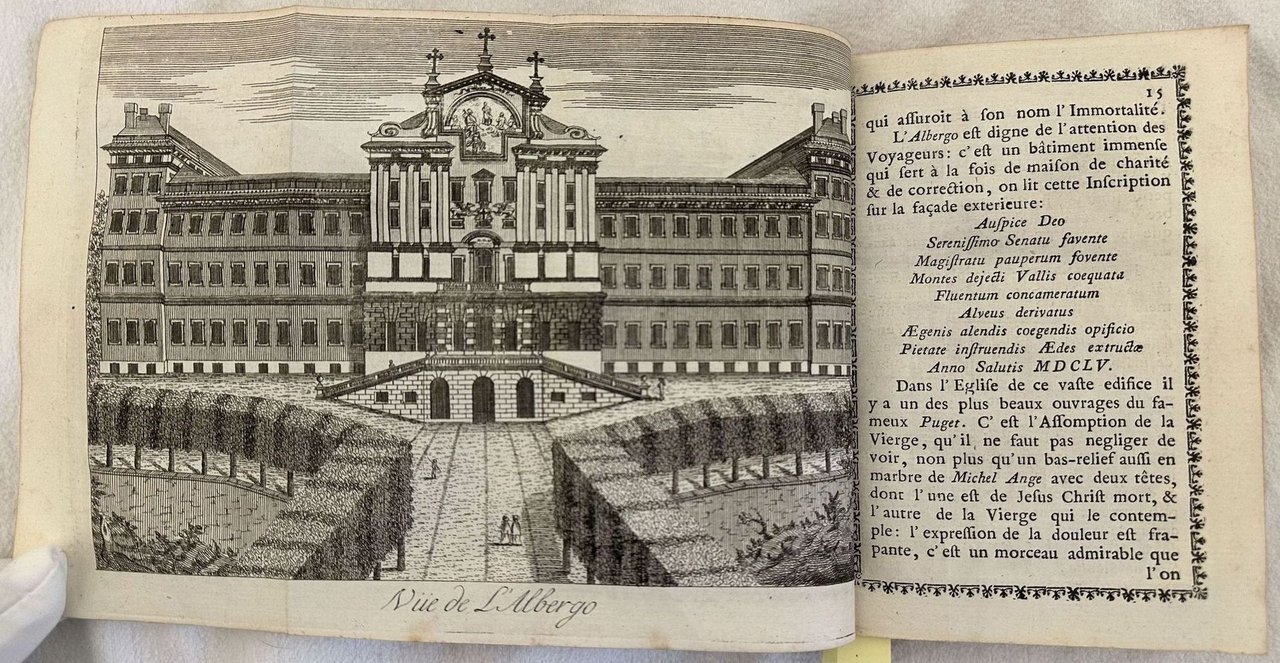 Vüe de L'Albergo
15
qui aſſuroit à ſon nom l'Immortalité.
L'Albergo eſt digne de l'attention des
Voyageurs: c'eſt un bâtiment immenſe
qui ſert à la fois de maiſon de charité
& de correction, on lit cette Inſcription
ſur la façade exterieure:
Auſpice Deo
Sereniſſimo Senatu favente
Magiſtratu pauperum fovente
Montes dejecti Vallis coequata
Fluentum concameratum
Alveus derivatus
Ægenis alendis coegendis opificio
Pietate inſtruendis Ædes extructæ
Anno Salutis MDCLV.
Dans l'Egliſe de ce vaſte edifice il
y a un des plus beaux ouvrages du fa-
meux Puget. C'eſt l'Aſſomption de la
Vierge, qu'il ne faut pas negliger de
voir, non plus qu'un bas-relief auſſi en
marbre de Michel Ange avec deux têtes,
dont l'une eſt de Jeſus Chriſt mort, &
l'autre de la Vierge qui le contem-
ple: l'expreſſion de la douleur eſt fra-
pante, c'eſt un morceau admirable que
l'on